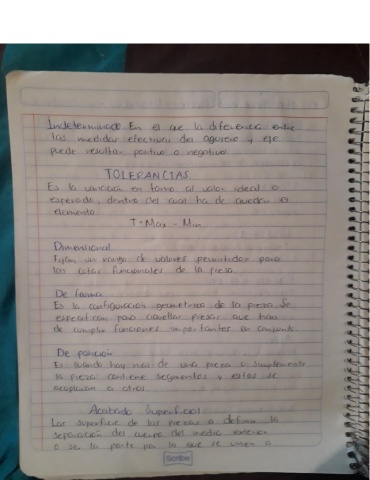 Indeterminado En el que la diferencia entre
las medidas efectivas del agujero y eje
puede resultar positivo o negativo
TOLERANCIAS
Es la variación en torno al valor ideal o
esperado, dentro del cual ha de quedar el
elemento
T = Max - Min
Dimensional
Fijan un rango de valores permitidos para
las cotas funcionales de la pieza
De forma
Es la configuración geometrica de la pieza Se
especifican para aquellas piezas que han
de cumplir funciones importantes en conjunto.
De posición
Es cuando hay mas de una pieza o simplemente
la pieza contiene segmentos y estos se
acoplaran a otros
Acabado Superficial
Las superficie de las piezas o define la
separación del cuerpo del medio exterior
o sea la parte por la que se unen a
Scribe